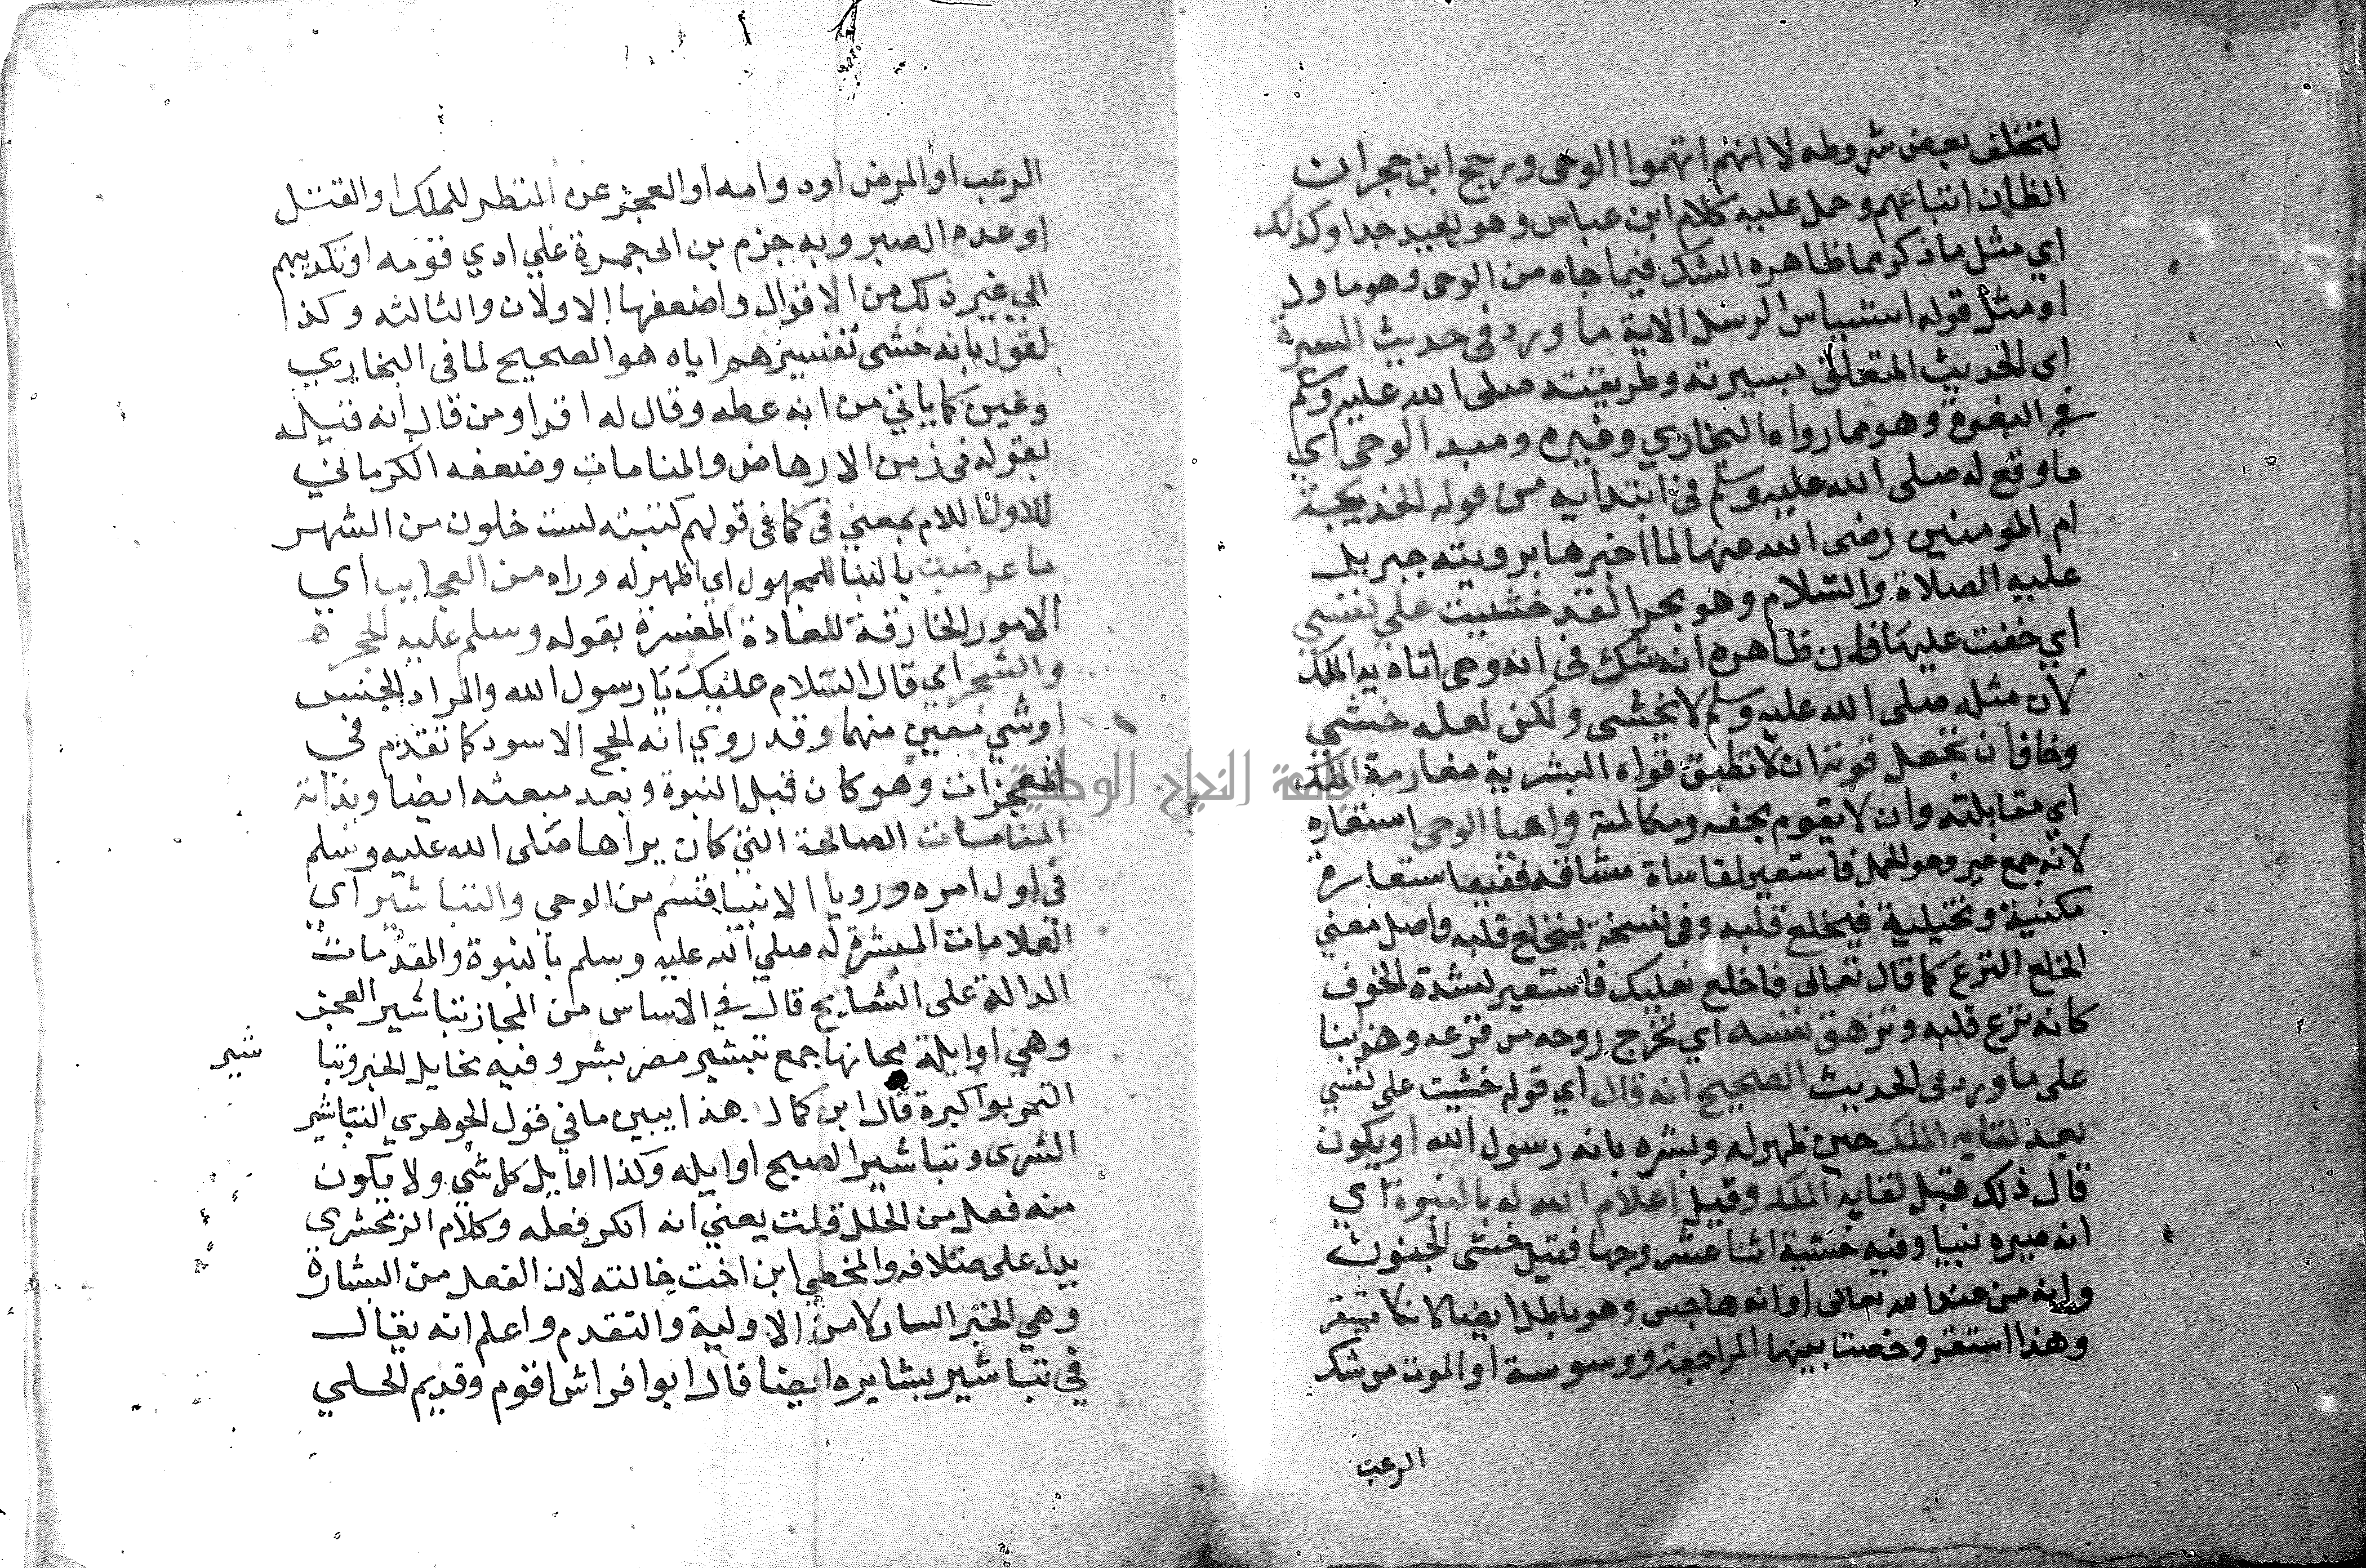 لتخلف بعض شروطه لا انهم اتهموا الوحى ورجح ابن حجر ان
الظان اتباعهم وحمل عليه كلام ابن عباس وهو بعيد جدا وكذلك
اي مثل ما ذكر مما ظاهره الشك فيما جاه من الوحى وهو ماول
او مثل قوله استيياس الرسل الاية ما ورد فى حديث السيرة
اى الحديث المتعلق بسيرته وطريقته صلى الله عليه وسلم
فى البعوة وهو مما رواه البخاري وغيره ومبدا الوحى اي
ما وقع له صلى الله عليه وسلم فى ابتدايه من قوله لخديجة
ام المومنين رضى الله عنها لما اخبرها برويته جبريل
عليه الصلاة والسلام وهو بحرا لقد خشيت على نفسي
اي خفت عليها فان ظاهره انه شك فى انه وحى اتاه به الملك
لان مثله صلى الله عليه وسلم لا يخشى ولكن لعله خشي
وخاف ان تحصل قوته ان لا تطيق قواه البشرية مقاومة الملك
اي مقابلته وان لا يقوم بحقه ومكالمته واعبا الوحى استعاره
لانه جمع عبء وهو الحمل فاستعير لمقاساة مشاقه ففيه استعارة
مكنية وتخييلية فيخلع قلبه وفى نسخة ينخلع قلبه واصل معني
الخلع النزع كما قال تعالى فاخلع نعليك فاستعير لشدة الخوف
كانه نزع قلبه وتزهق نفسه اي تخرج روحه من فزعه وهذ بنا
على ما ورد فى الحديث الصحيح انه قال اي قوله خشيت على نفسي
بعد لقايه الملك حين ظهر له وبشره بانه رسول الله او يكون
قال ذلك قبل لقايه الملك وقبل اعلام الله له بالنبوة اي
انه صيره نبيا وفيه خشية اثنا عشر وجها فقيل خشى الجنون
وانه من عند الله تعالى او انه هاجس وهو باطل ايضا لانه لا يستقر
وهذا استقر وحصلت بينهما المراجعة ووسوسة او الموت من شك
الرعب
الرعب او المرض او دوامه او العجز عن النظر للملك او القتل
او عدم الصبر وبه جزم بن ابى جمرة على اذي قومه او تكذيبهم
الى غير ذلك من الاقوال واضعفها الاولان والثالثه وكذا
لقول بانه خشى تعييرهم اياه هو الصحيح لما فى البخاري
وغيره كما ياتي من انه غطه وقال له اقرا ومن قال انه قبله
بقوله فى زمن الارهاض والمنامات وضعفه الكرماني
للاول اللام بمعني فى كما فى قولهم كتبته لست خلون من الشهر
ما عرضت بالبنا للمجهول اي اظهر له وراه من العجايب اي
الامور الخارقة للعادة المفسرة بقوله وسلم عليه الحجر ه
والشجر اي قال السلام عليك يا رسول الله والمراد الجنس
او شي معين منهما وقد روي انه الحجر الاسود كما تقدم في
المعجزات وهو كان قبل النبوة وبعد مبعثه ايضا وبداته
المنامات الصالحة التى كان يراها صلى الله عليه وسلم
فى اول امره ورويا الانبيا قسم من الوحي والتباشير اي
العلامات المبشرة له صلى الله عليه وسلم بالنبوة والمقدمات
الدالة على التباريح قال فى الاساس من المجاز تباشير الفجر
وهي اوايله كانها جمع تبشير مصدر بشر وفيه مخايل الخير وتبا
شير
النحر بواكيره قال ابن كمال هذا يبين ما في قول الجوهري التباشير
البشرى وتباشير الصبح اوايله وكذا اوايل كل شي ولا يكون
منه فعل من الخلل قلت يعني انه انكر فعله وكلام الزمخشري
يدل على خلافه والمخطي ابن اخت خالته لان الفعل من البشارة
وهي الخبر السار لا من الاولية والتقدم واعلم انه يقال
في تباشير بشايره ايضا قال ابو افراس اقوم وقديم الحلي